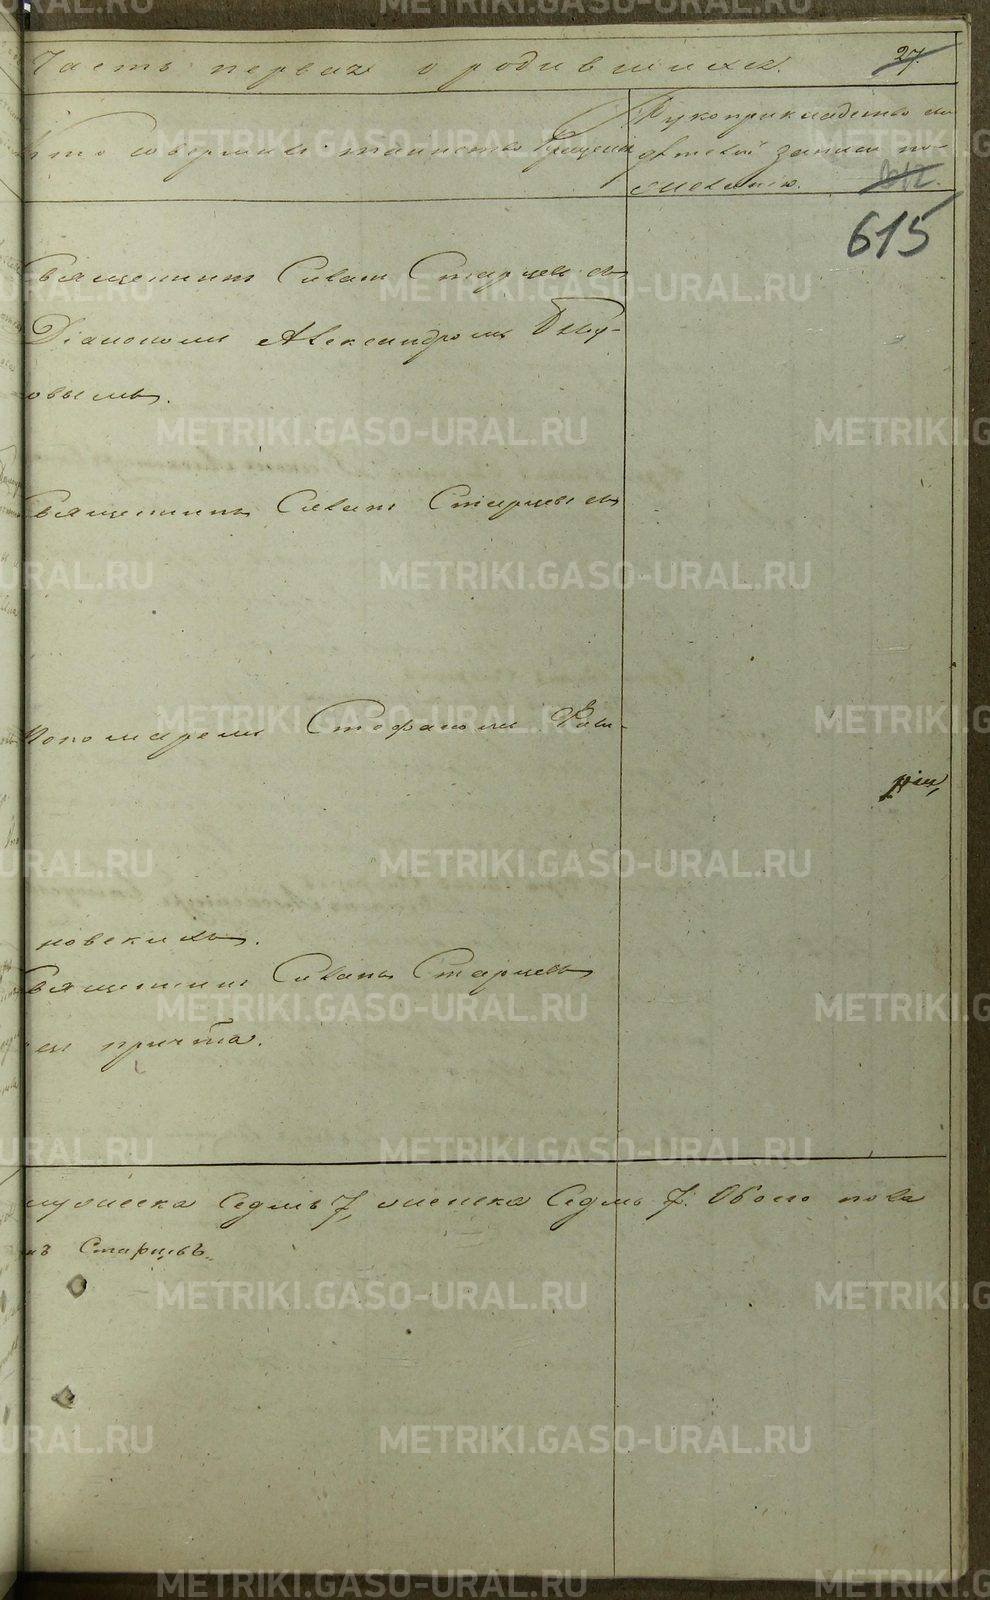 Часть первая о родившихся.
27.
Кто совершилъ таинство Крещенія
Рукоприкладство сви
дѣтелей записи по
желанію.
615
Священникъ Іоаннъ Старцевъ съ
Діакономъ Александромъ
овымъ.
Священникъ Іоаннъ Старцевъ съ
Пономаремъ Стефаномъ Ром-
новскихъ.
Священникъ Іоаннъ Старцевъ
съ причта.
мужеска Седмь 7, женска Седмь 7. Обоего пола
нъ Старцевъ.
METRIKI.GASO-URAL.RU